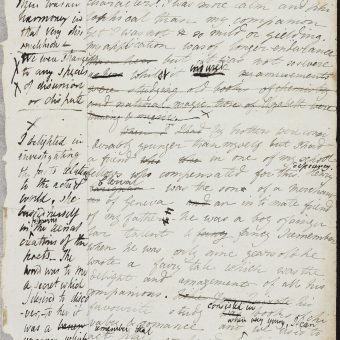 There was an
harmony in
that very diss
imilitude
We were strangers
to any species
of disunion
or dispute
I delighted in
investigating
the facts relative
to the actual
world; She
busied herself
in following
the aerial
creations of the
poets. The
world was to my
a secret which
I desired to disco
ver. to her it
was a
characters. I was more calm and phi
losophical than my companion
yet I was not so mild or yeilding.
My application was of longer endurance
but it was not so severe
whilst it endured amusements
were studying old books of chemistry
and natural magic, those of Elizabeth were
drawing & music.
My brothers were consi
derably younger than myself but I had
a friend in one of my school
fellows who compensated for this deficiency.
Clerval was the son of a merchant
of Geneva an intimate friend
of my father he was a boy of singu
lar talent & fancy. I remember
when he was only nine years old he
wrote a fairy tale which was the
delight and amazement of all his
companions. his
favourite study consisted in books of chi
valry & romance and when very young, I can
remember that